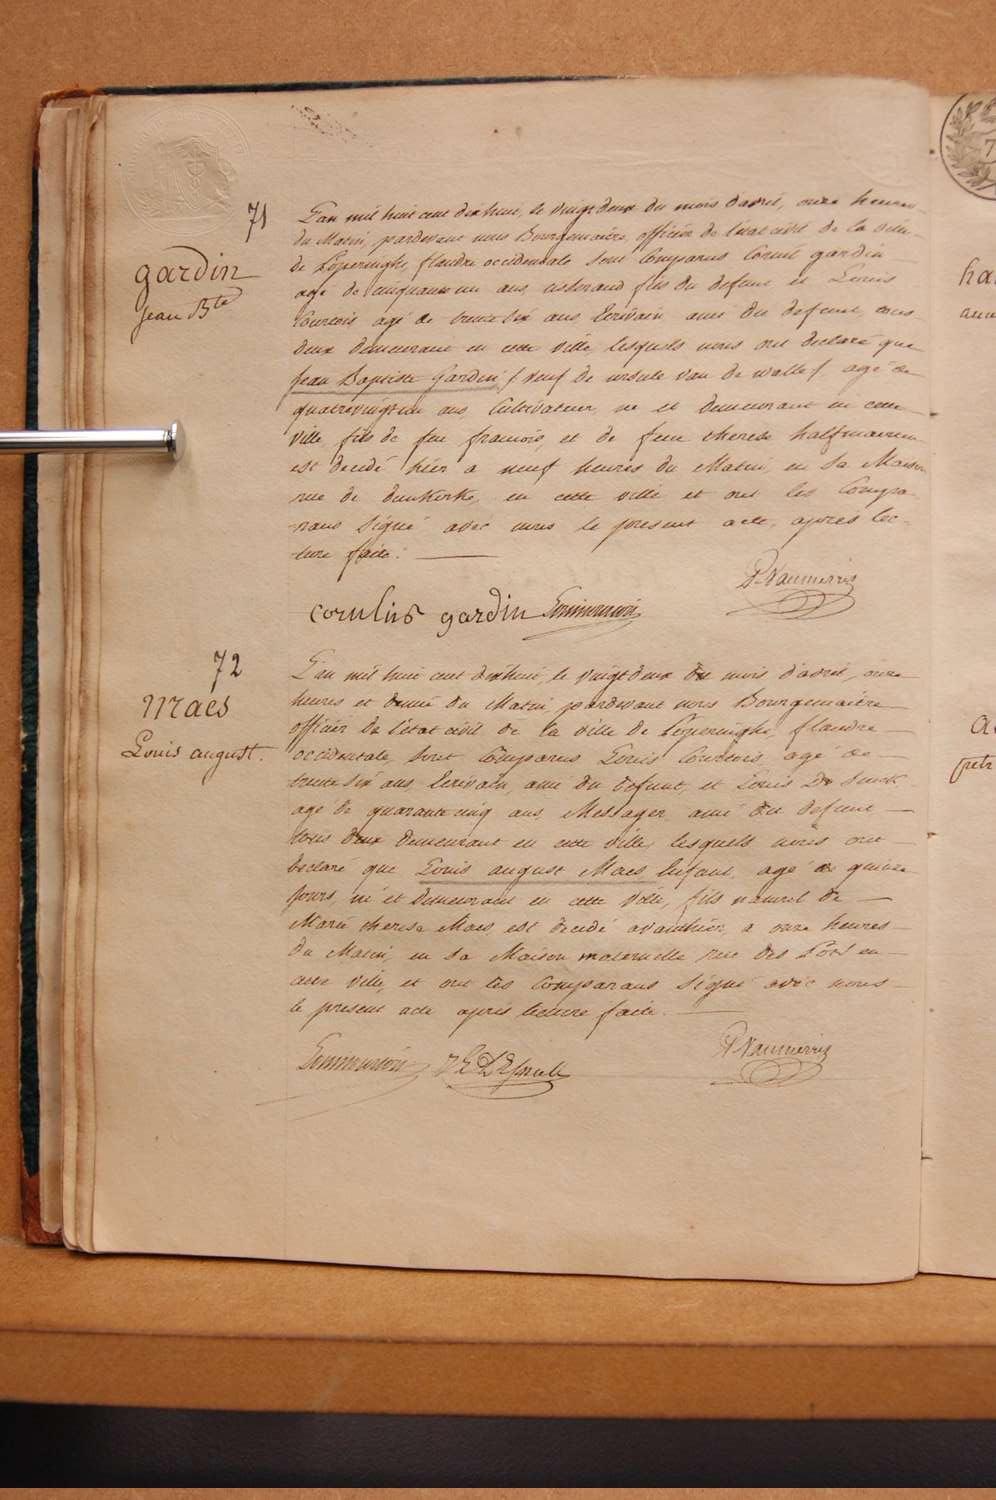 71
gardin
Jean Bte
L'an mil huit cent dix huit, le vingt deux du mois d'avril, onze heures
du Matin, pardevant nous Bourgemaitre, officier de l'état civil de la ville
de Poperinghe, flandre occidentale sont Comparus Cornil gardin
agé de cinquante un ans, fils du defunt et Louis
Courtois agé de trente six ans Ecrivain ami du defunt, tous
deux demeurant en cette ville, lesquels nous ont declaré que
Jean Baptiste Gardin, / veuf de ursule van de walle / agé de
quatrevingt un ans, Cultivateur, né et demeurant en cette
ville fils de feu francois, et de feue therese
est decédé hier a neuf heures du Matin, en sa Maison
rue de dunkerke, en cette ville et ont les Compa-
rans signé avec nous le present acte, après lec-
ture faite.
cornelius gardin
P. Vanmerris
72
Maes
Louis august.
L'an mil huit cent dixhuit, le vingt deux du mois d'avril, onze
heures et demie du Matin, pardevant nous Bourgemaitre
officier de l'état civil de la ville de Poperinghe, flandre
occidentale, sont Comparus Louis Courtois, agé de
trente six ans, Ecrivain, ami du defunt, et Louis De
agé de quarante cinq ans, Messager, ami du defunt
tous deux demeurant en cette ville, lesquels nous ont
declaré que Louis august Maes Enfant, agé de quinze
jours, né et demeurant en cette ville, fils naturel de
Marie therese Maes est decédé avanthier, a onze heures
du Matin, en sa Maison maternelle rue des Pots en
cette ville, et ont les Comparans signé avec nous
le present acte après lecture faite.
P. Vanmerris